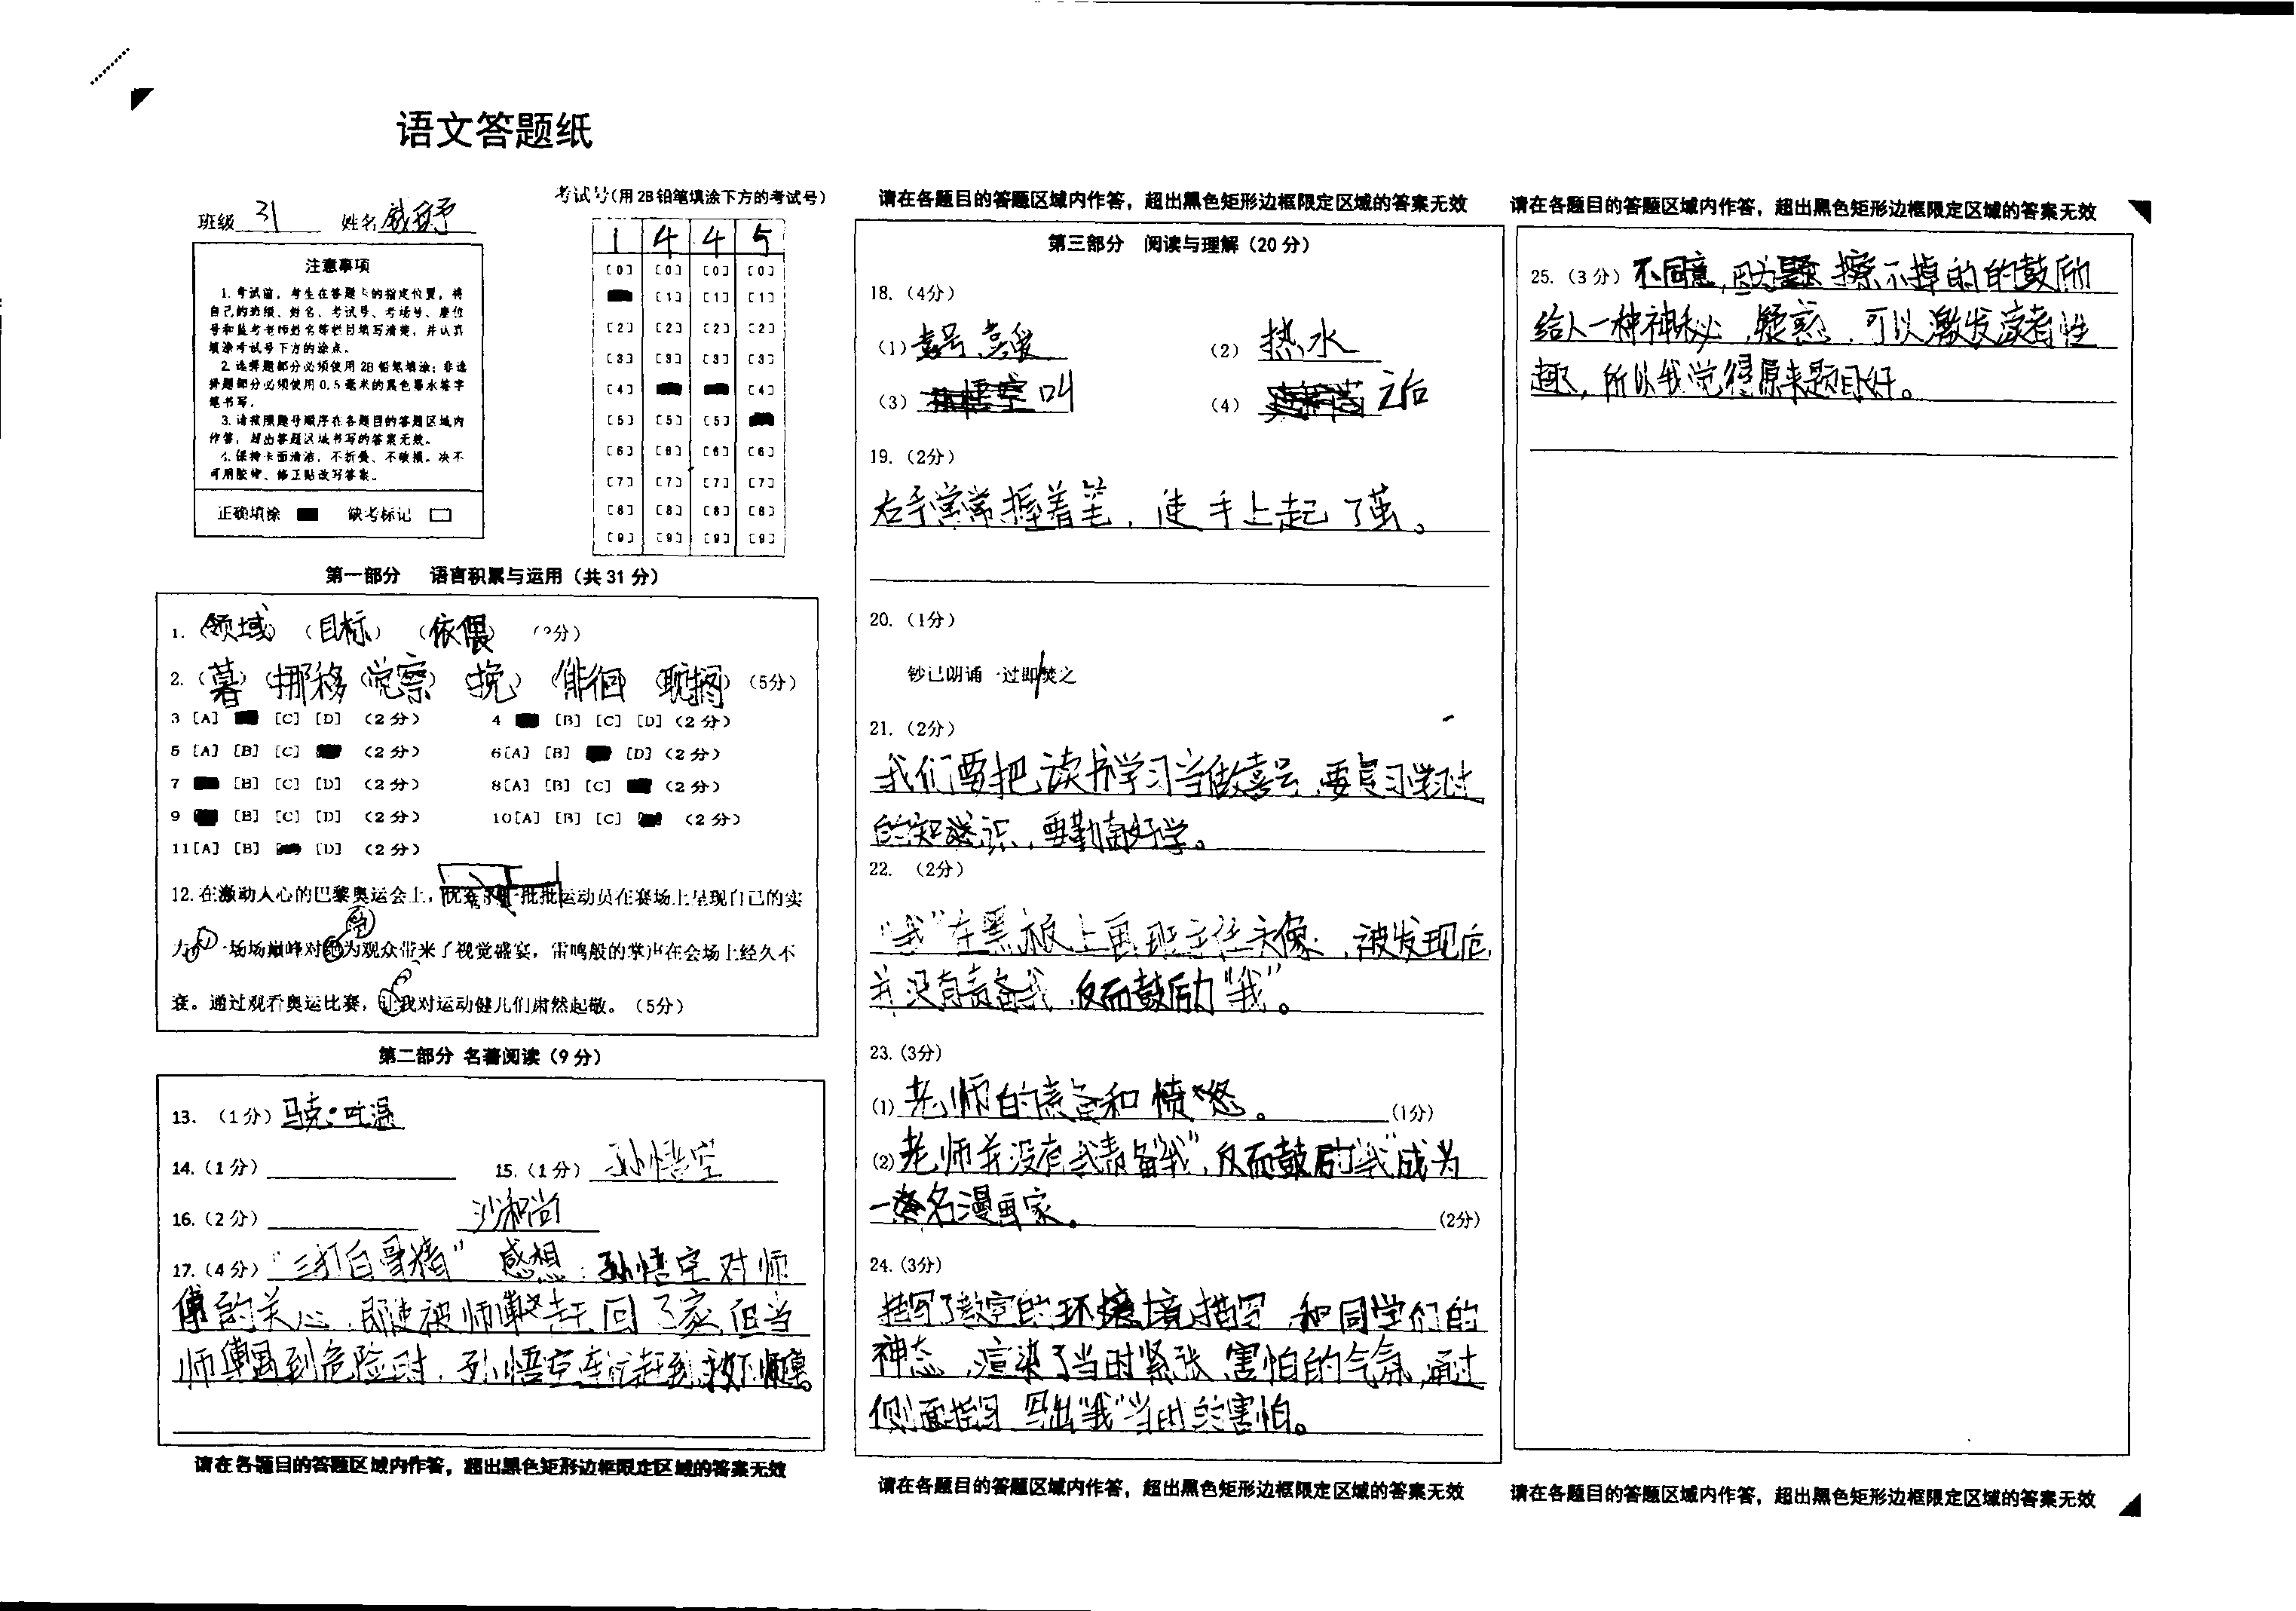 语文答题纸
班级 31 姓名
考试号(用 2B 铅笔填涂下方的考试号)
1 4 4 5
[0] [0] [0] [0]
[1] [1]  [1]
[2] [2] [2] [2]
[3] [3] [3] [3]
[4]   [4]
[5] [5] [5]
[6] [6] [6] [6]
[7] [7] [7] [7]
[8] [8] [8] [8]
[9] [9] [9] [9]
注意事项
1. 考试前，考生在答题卡的指定位置，将
自己的班级、姓名、考试号、考场号、座位
号和监考老师姓名等栏目填写清楚，并认真
填涂考试号下方的涂点。
2. 选择题部分必须使用 2B 铅笔填涂；非选
择题部分必须使用 0.5 毫米的黑色墨水签字
笔书写。
3. 请按照题号顺序在各题目的答题区域内
作答，超出答题区域书写的答案无效。
4. 保持卡面清洁，不折叠、不破损。决不
可用胶带、修正贴改写答案。
正确填涂 缺考标记
第一部分 语言积累与运用（共 31 分）
1. (领域) (目标) (依偎) (3分)
2. (暮) (挪移) (觉察) (挽) (徘徊) (耽搁) (5分)
3 [A] [C] [D] (2 分) 4 [B] [C] [D] (2 分)
5 [A] [B] [C] (2 分) 6 [A] [B] [D] (2 分)
7 [B] [C] [D] (2 分) 8 [A] [B] [C] (2 分)
9 [B] [C] [D] (2 分) 10 [A] [B] [C] (2 分)
11 [A] [B] [D] (2 分)
12. 在激动人心的巴黎奥运会上，优秀的一批批运动员在赛场上呈现自己的实
力，一场场巅峰对绝为观众带来了视觉盛宴，雷鸣般的掌声在会场上经久不
衰。通过观看奥运比赛，让我对运动健儿们肃然起敬。（5分）
第二部分 名著阅读（9 分）
13. （1 分）马克·吐温
14. （1 分） 15. （1 分）孙悟空
16. （2 分） 沙和尚
17. （4 分）“三打白骨精” 感想：孙悟空对师
傅的关心，即使被师傅赶回了家，但当
师傅遇到危险时，孙悟空连忙赶到，救下师傅。
请在各题目的答题区域内作答，超出黑色矩形边框限定区域的答案无效
请在各题目的答题区域内作答，超出黑色矩形边框限定区域的答案无效
第三部分 阅读与理解（20 分）
18. （4分）
(1) 喜号 喜爱 (2) 热水
(3) 叫 (4) 之后
19. （2分）
右手常常握着笔，使手上起了茧。
20. （1分）
钞已朗诵一过即/焚之
21. （2分）
我们要把读书学习当做喜号，要复习学过
的知识，要勤奋好学。
22. （2分）
“我”在黑板上画班主任头像，被发现后
并没有责备我，反而鼓励“我”。
23. （3分）
(1) 老师的责备和愤怒。 (1分)
(2) 老师并没有责备“我”，反而鼓励“我”成为
一名漫画家。 (2分)
24. （3分）
描写了教室的环境描写，和同学们的
神态，渲染了当时紧张、害怕的气氛，通过
侧面描写，写出“我”当时的害怕。
请在各题目的答题区域内作答，超出黑色矩形边框限定区域的答案无效
请在各题目的答题区域内作答，超出黑色矩形边框限定区域的答案无效
25. （3 分）不同意，因为 擦不掉的的鼓励
给人一种神秘，疑惑，可以激发读者性
趣，所以我觉得原来题目好。
请在各题目的答题区域内作答，超出黑色矩形边框限定区域的答案无效